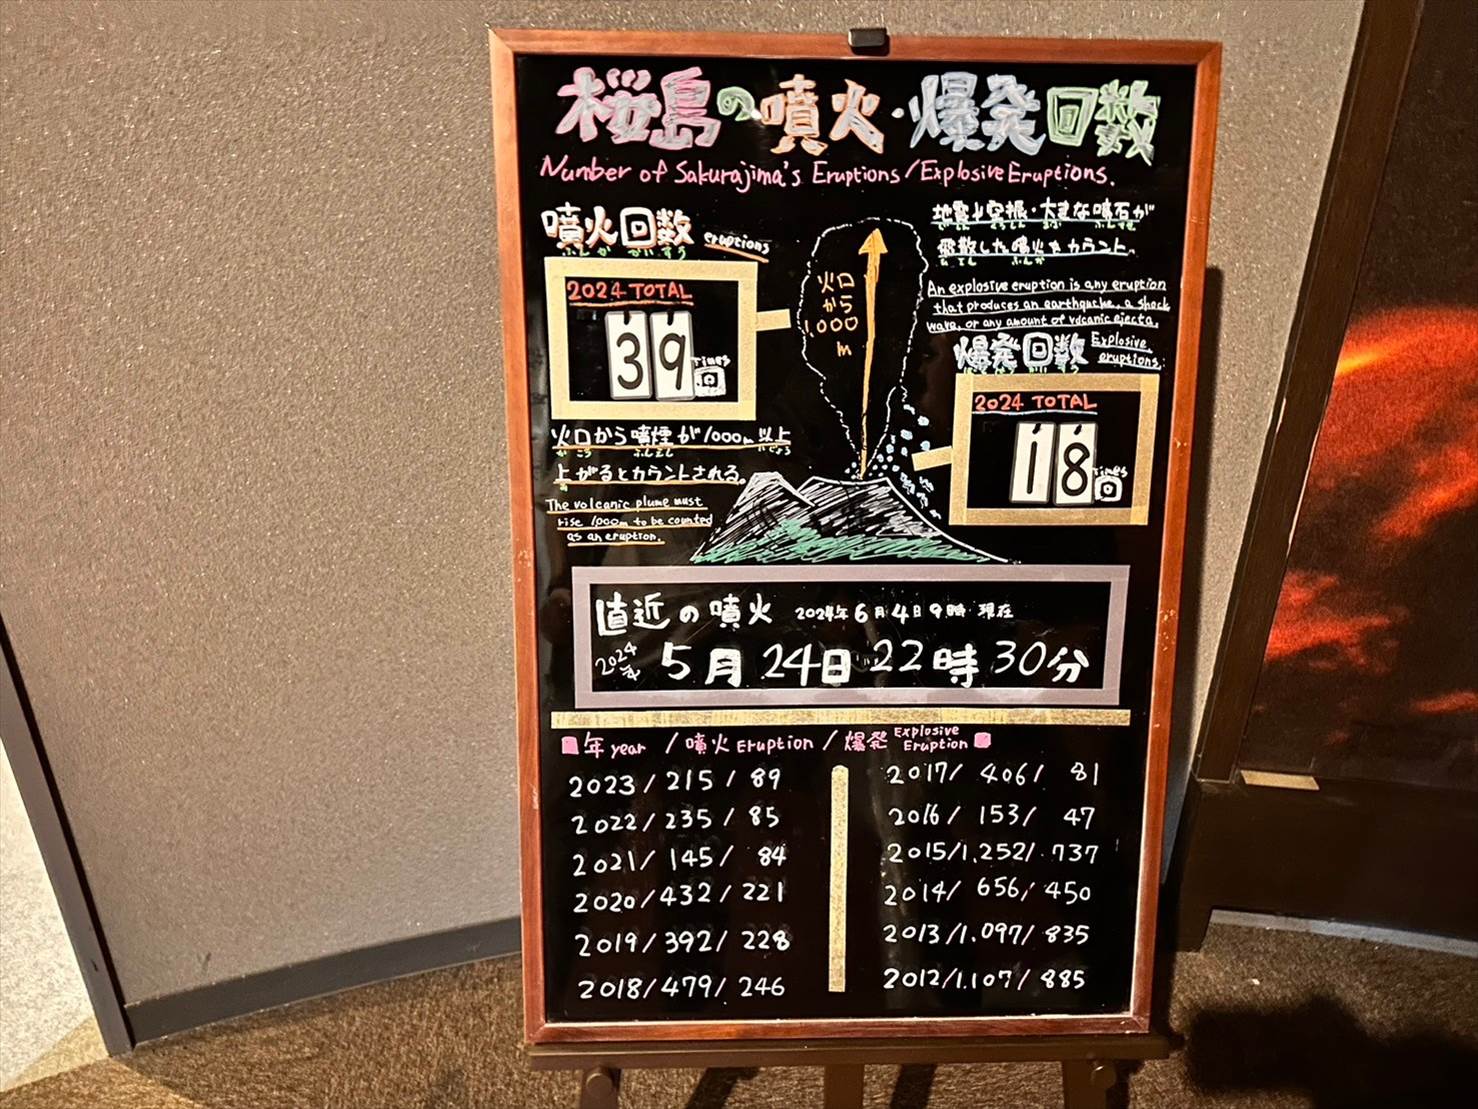 桜島の噴火・爆発回数
Number of Sakurajima's Eruptions/Explosive Eruptions.
噴火回数 eruptions
ふんかかいすう
2024 TOTAL
39 Times
回
火口から噴煙が1000m以上
かこう ふんえん いじょう
上がるとカウントされる。
あ
The volcanic plume must
rise 1000m to be counted
as an eruption.
火口
から
1,000
m
地震や空振・大きな噴石が
じしん くうしん おお ふんせき
飛散した噴火をカウント。
ひさん ふんか
An explosive eruption is any eruption
that produces an earthquake, a shock
wave, or any amount of volcanic ejecta.
爆発回数 Explosive
eruptions.
ばくはつかいすう
2024 TOTAL
18 Times
回
直近の噴火 2024年6月4日9時 現在
2024年 5月24日22時30分
年 year / 噴火 Eruption / 爆発 Explosive Eruption
2023/215/89
2022/235/85
2021/145/84
2020/432/221
2019/392/228
2018/479/246
2017/406/81
2016/153/47
2015/1,252/737
2014/656/450
2013/1.097/835
2012/1.107/885